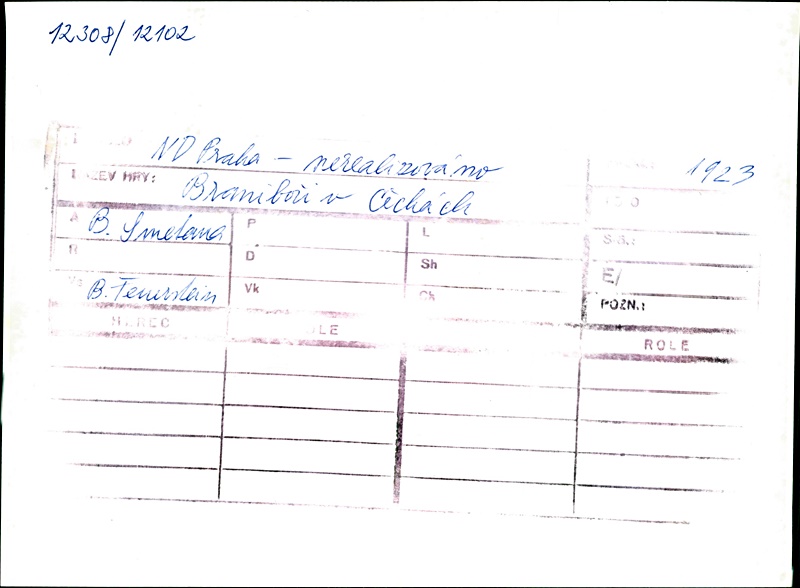 12308/12102
ND Praha - nerealizováno 1923
ZEV HRY: Braniboři v Čechách
A B. Smetana P L
R D Sh S.g.:
B. Feuerstein Vk Ch E/
POZN.:
HEREC ROLE
ROLE